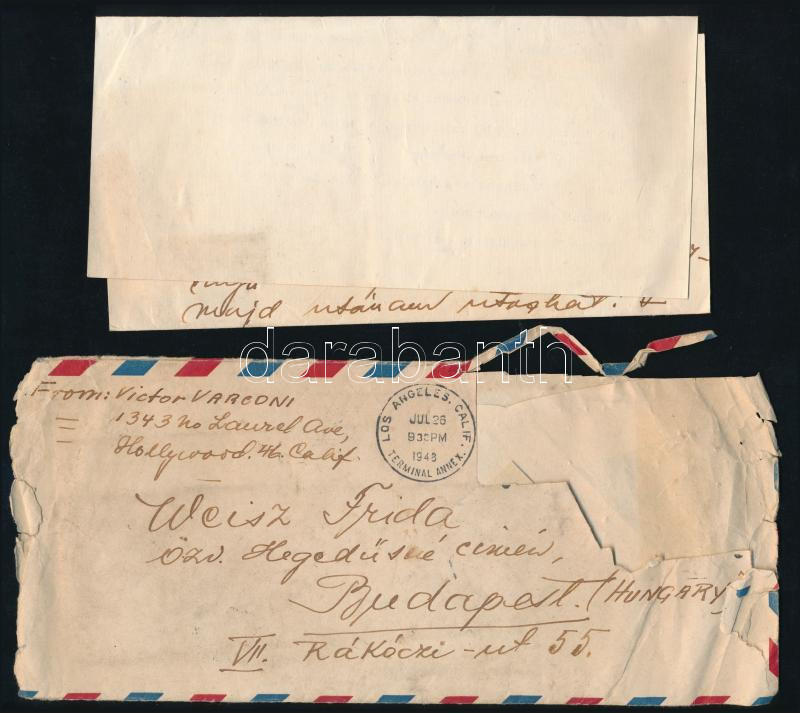 majd utánam utazhat.
darabanth
From: Victor VARCONI
1343 No Laurel Ave,
Hollywood. 46. Calif.
LOS ANGELES, CALIF.
JUL 26
9 30 PM
1948
TERMINAL ANNEX.
Weisz Frida
özv. Hegedüsné címén,
Budapest. (HUNGARY)
VII. Rákóczi-ut 55.